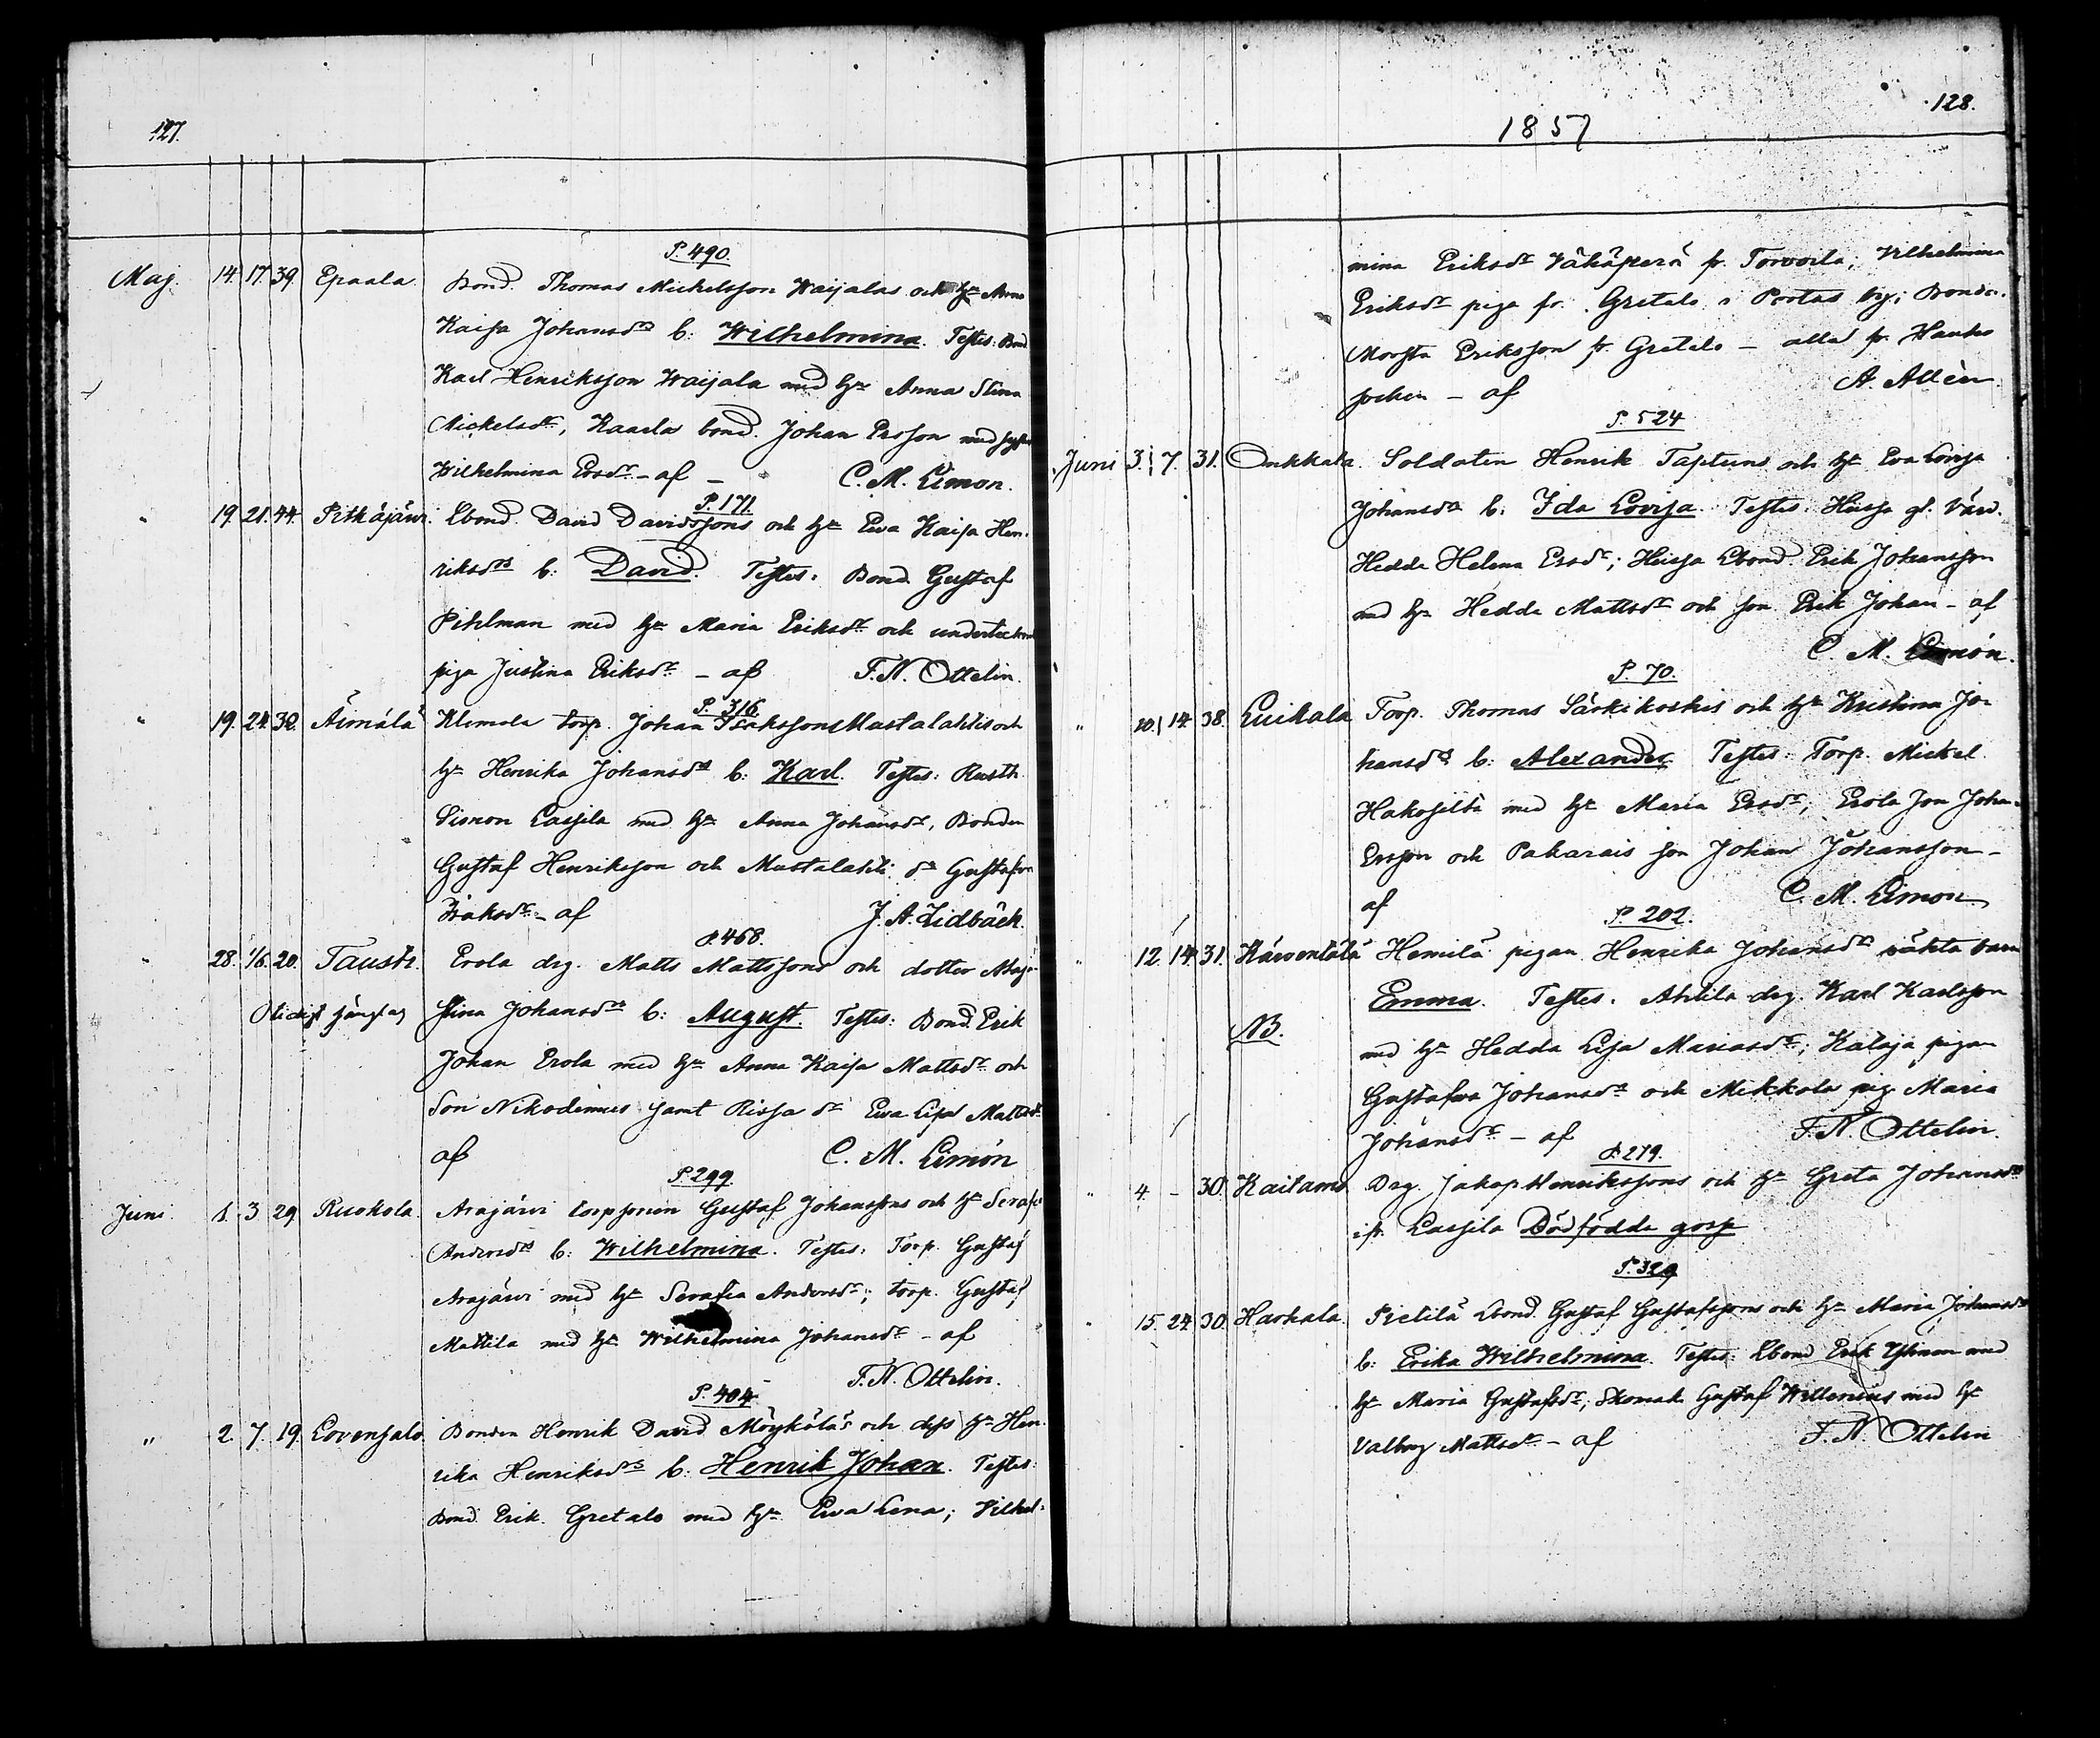 127.
P. 490.
Maj. 14. 17. 39. Epaala Bond. Thomas Mickelsson Waijalas och h:u Anna
Kaisa Johansd:rs b: Wilhelmina. Testes: Bond.
Karl Henriksson Waijala med h:u Anna Stina
Mickelsd:r, Kaarla bond. Johan Ersson med
Wilhelmina Ersd:r - af - C. M. Limon.
P. 171.
" 19. 21. 44. Pitkäjärvi. Ebond. David Davidssons och h:u Eva Kaisa Hen-
riksd:rs b: David. Testes: Bond. Gustaf
Pihlman med h:u Maria Eriksd:r och
piga Justina Eriksd:r - af F. N. Ottelin.
P. 316
" 19. 24. 30. Äimälä Klemola torp. Johan Isakssons Mustalahtis och
h:u Henrika Johansd:rs b: Karl. Testes: Rusth.
Simon Lassila med h:u Anna Johansd:r, Bonden
Gustaf Henriksson och Mustalahti d:r Gustafva
Isaksd:r - af J. A. Lidbäck.
P. 468.
" 28. 1/6. 20. Tausti. Erola drg. Matts Mattssons och dotter Maja
Stina Johansd:rs b: August. Testes: Bond. Erik
Johan Erola med h:u Anna Kaisa Mattsd:r och
Son Nikodemus samt Rissa d:r Eva Lisa Mattsd:r
af C. M. Limón
P. 299
Juni 1. 3. 29. Ruokola. Arajärvi torpsonen Gustaf Johanssons och h:u Serafia
Andersd:rs b: Wilhelmina. Testes: Torp. Gustaf
Arajärvi med h:u Serafia Andersd:r; torp. Gustaf
Mattila med h:u Wilhelmina Johansd:r - af
F. N. Ottelin.
P. 404.
" 2. 7. 19. Lovensalo. Bonden Henrik David Möykäläs och dess h:u Hen-
rika Henriksd:rs b: Henrik Johan. Testes:
Bond. Erik Gretalo med h:u Eva Lena; Vilhel-
128.
1857
mina Eriksd:r Vähäperä fr. Torvoila; Vilhelmina
Eriksd:r piga fr. Gretalo i Portas by; Bonde.
Eriksson fr. Gretalo - alla fr. Hauho
socken - af A. Allén
P. 524
Juni 3. 7. 31. Onkkala. Soldaten Henrik Taptuns och h:u Eva Lovisa
Johansd:rs b: Ida Lovisa. Testes: Heissa gl. Värd.
Hedda Helena Ersd:r; Heissa Ebond. Erik Johansson
med h:u Hedda Mattsd:r och son Erik Johan - af
C. M. Limón.
P. 70.
" 10. 14. 38. Luikala Torp. Thomas Särkikoskis och h:u Kristina Jo-
hansd:rs b: Alexander. Testes: Torp. Mickel
Hakosilta med h:u Maria Ersd:r; Erola son Johan
Ersson och Pakarais son Johan Johansson -
af C. M. Limon
P. 202.
" 12. 14. 31. Kärventälä Hemilä pigan Henrika Johansd:rs oäkta barn
Emma. Testes: Ahlila drg. Karl Karlsson
NB.
med h:u Hedda Lisa Mariasd:r; Kälajä pigan
Gustafva Johansd:r och Mikkola pig. Maria
Johansd:r - af F. N. Ottelin.
P. 279.
" 4 - 30. Kaitamo Drg. Jakop Henrikssons och h:u Greta Johansd:rs
ifr. Lassila Dödfödda goss
P. 329
" 15. 24. 30. Harhala. Pietilä Ebond. Gustaf Gustafssons och h:u Maria Johansd:rs
b: Erika Wilhelmina. Testes: Ebond Erik med
h:u Maria Gustafsd:r; Skomak. Gustaf Willenius med h:u
Valborg Mattsd:r - af F. N. Ottelin